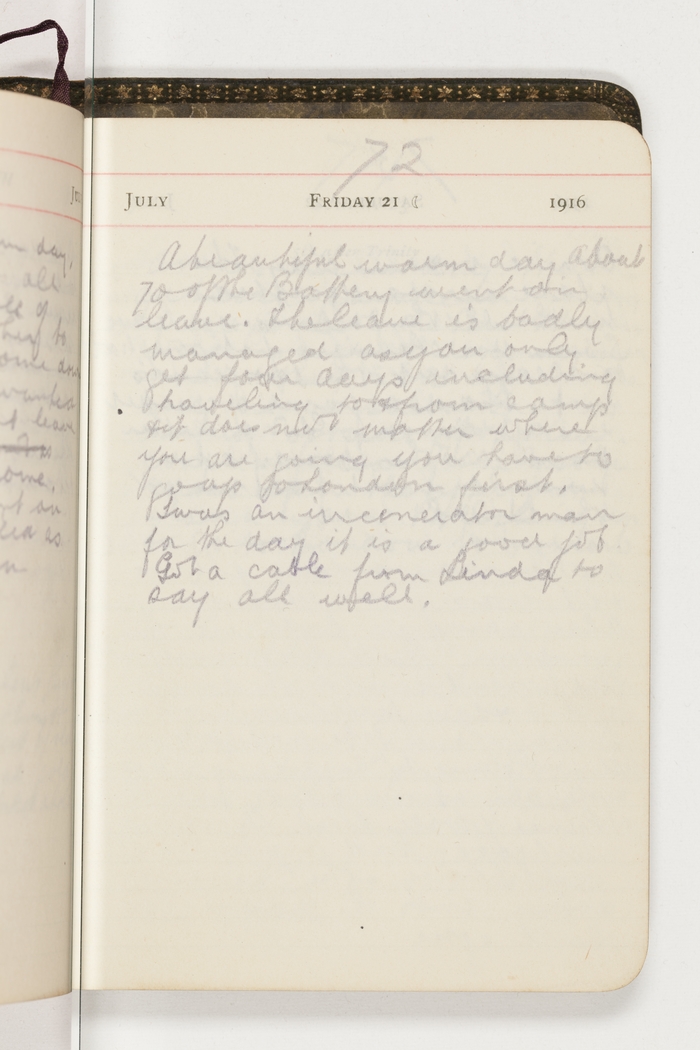 72
JULY FRIDAY 21 ☾ 1916
A beautiful warm day About
70 of the Battery went on
leave. The leave is badly
managed as you only
get four days including
traveling to & from camp
& it does not matter where
you are going you have to
go up to London first.
I was an incenerator man
for the day it is a good job
Got a cable from Linda to
say all well.